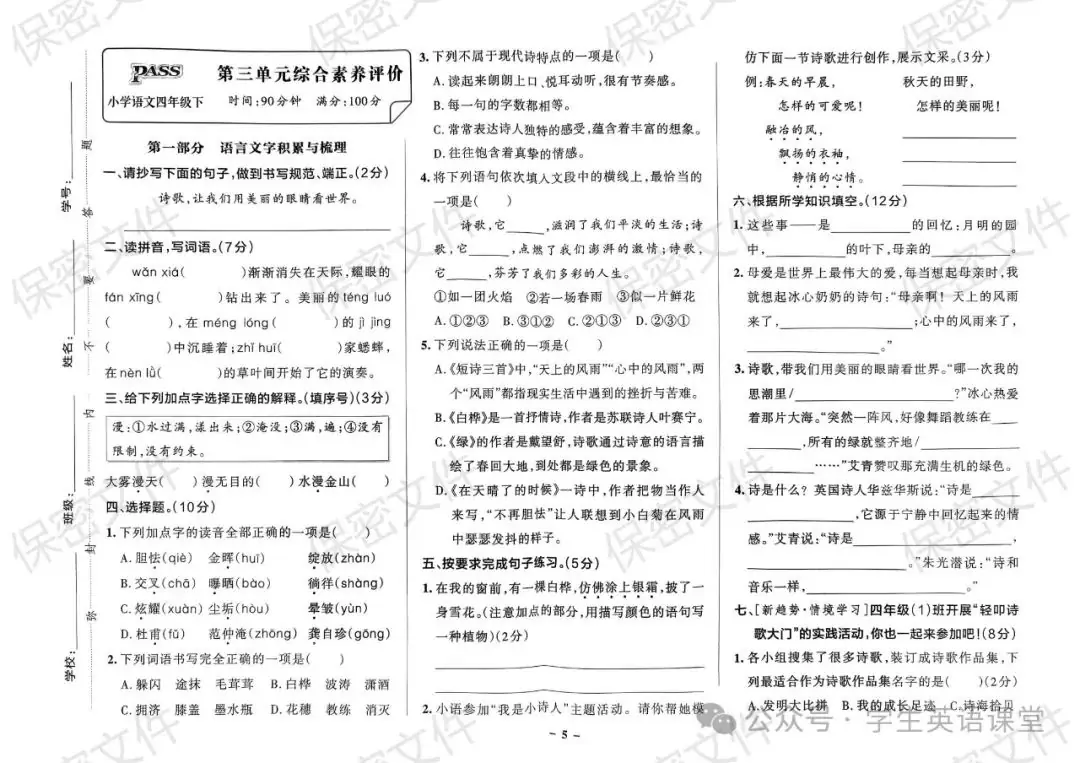 学号：
姓名：
班级：
学校：
题
答
要
不
内
线
封
弥
PASS
第三单元综合素养评价
小学语文四年级下 时间：90分钟 满分：100分
第一部分 语言文字积累与梳理
一、请抄写下面的句子，做到书写规范、端正。(2分)
诗歌，让我们用美丽的眼睛看世界。
二、读拼音，写词语。(7分)
wǎn xiá( )渐渐消失在天际，耀眼的
fán xīng( )钻出来了。美丽的 téng luó
( )，在 méng lóng( )的 jì jìng
( )中沉睡着；zhī huī( )家蟋蟀，
在 nèn lǜ( )的草叶间开始了它的演奏。
三、给下列加点字选择正确的解释。(填序号)(3分)
漫：①水过满，漾出来；②淹没；③满，遍；④没有
限制，没有约束。
大雾漫天( ) 漫无目的( ) 水漫金山( )
四、选择题。(10分)
1. 下列加点字的读音全部正确的一项是( )
A. 胆怯(qiè) 金晖(huī) 绽放(zhàn)
B. 交叉(chā) 曝晒(bào) 徜徉(shàng)
C. 炫耀(xuàn) 尘垢(hòu) 晕皱(yùn)
D. 杜甫(fǔ) 范仲淹(zhōng) 龚自珍(gōng)
2. 下列词语书写完全正确的一项是( )
A. 躲闪 途抹 毛茸茸 B. 白桦 波涛 潇酒
C. 拥济 膝盖 墨水瓶 D. 花穗 教练 消灭
3. 下列不属于现代诗特点的一项是( )
A. 读起来朗朗上口、悦耳动听，很有节奏感。
B. 每一句的字数都相等。
C. 常常表达诗人独特的感受，蕴含着丰富的想象。
D. 往往饱含着真挚的情感。
4. 将下列语句依次填入文段中的横线上，最恰当的
一项是( )
诗歌，它______，滋润了我们平淡的生活；诗
歌，它______，点燃了我们澎湃的激情；诗歌，
它______，芬芳了我们多彩的人生。
①如一团火焰 ②若一场春雨 ③似一片鲜花
A. ①②③ B. ③①② C. ②①③ D. ②③①
5. 下列说法正确的一项是( )
A.《短诗三首》中，“天上的风雨”“心中的风雨”，两
个“风雨”都指现实生活中遇到的挫折与苦难。
B.《白桦》是一首抒情诗，作者是苏联诗人叶赛宁。
C.《绿》的作者是戴望舒，诗歌通过诗意的语言描
绘了春回大地，到处都是绿色的景象。
D.《在天晴了的时候》一诗中，作者把物当作人
来写，“不再胆怯”让人联想到小白菊在风雨
中瑟瑟发抖的样子。
五、按要求完成句子练习。(5分)
1. 在我的窗前，有一棵白桦，仿佛涂上银霜，披了一
身雪花。(注意加点的部分，用描写颜色的语句写
一种植物)(2分)
2. 小语参加“我是小诗人”主题活动。请你帮她模
仿下面一节诗歌进行创作，展示文采。(3分)
例：春天的早晨， 秋天的田野，
怎样的可爱呢！ 怎样的美丽呢！
融冶的风，
飘扬的衣袖，
静悄的心情。
六、根据所学知识填空。(12分)
1. 这些事——是________的回忆：月明的园
中，________的叶下，母亲的________。
2. 母爱是世界上最伟大的爱，每当想起母亲时，我
就想起冰心奶奶的诗句：“母亲啊！天上的风雨
来了，____________；心中的风雨来了，
____________。”
3. 诗歌，带我们用美丽的眼睛看世界。“哪一次我的
思潮里/____________?”冰心热爱
着那片大海。“突然一阵风，好像舞蹈教练在____
______，所有的绿就整齐地/________
________……”艾青赞叹那充满生机的绿色。
4. 诗是什么？英国诗人华兹华斯说：“诗是____
________，它源于宁静中回忆起来的情
感。”艾青说：“诗是____________，
____________。”朱光潜说：“诗和
音乐一样，____________。”
七、[新趋势·情境学习]四年级(1)班开展“轻叩诗
歌大门”的实践活动，你也一起来参加吧！(8分)
1. 各小组搜集了很多诗歌，装订成诗歌作品集，下
列最适合作为诗歌作品集名字的是( )(2分)
A. 发明大比拼 B. 我的成长足迹 C. 诗海拾贝
－5－
公众号·学生英语课堂
保密文件